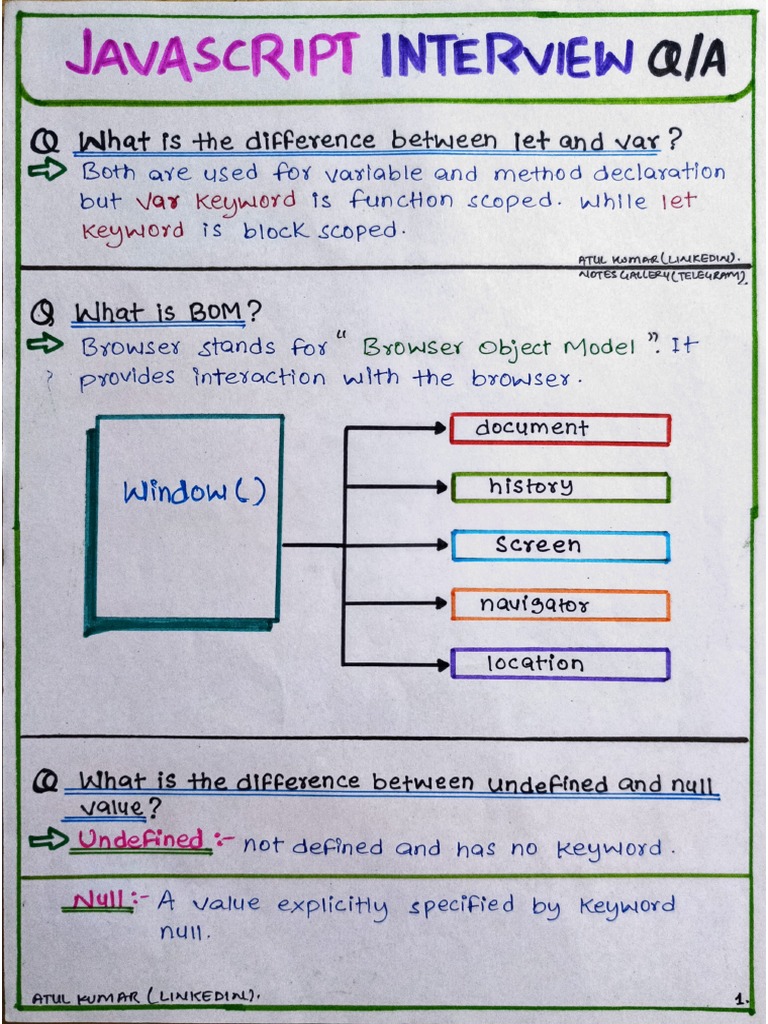 JAVASCRIPT INTERVIEW Q/A
Q What is the difference between let and var?
Both are used for variable and method declaration
but var keyword is function scoped. While let
keyword is block scoped.
ATUL KUMAR (LINKEDIN).
NOTES GALLERY (TELEGRAM).
Q What is BOM?
Browser stands for "Browser Object Model". It
? provides interaction with the browser.
Window()
document
history
screen
navigator
location
Q What is the difference between undefined and null
value?
Undefined:- not defined and has no keyword.
Null:- A value explicitly specified by keyword
null.
ATUL KUMAR (LINKEDIN).
1.